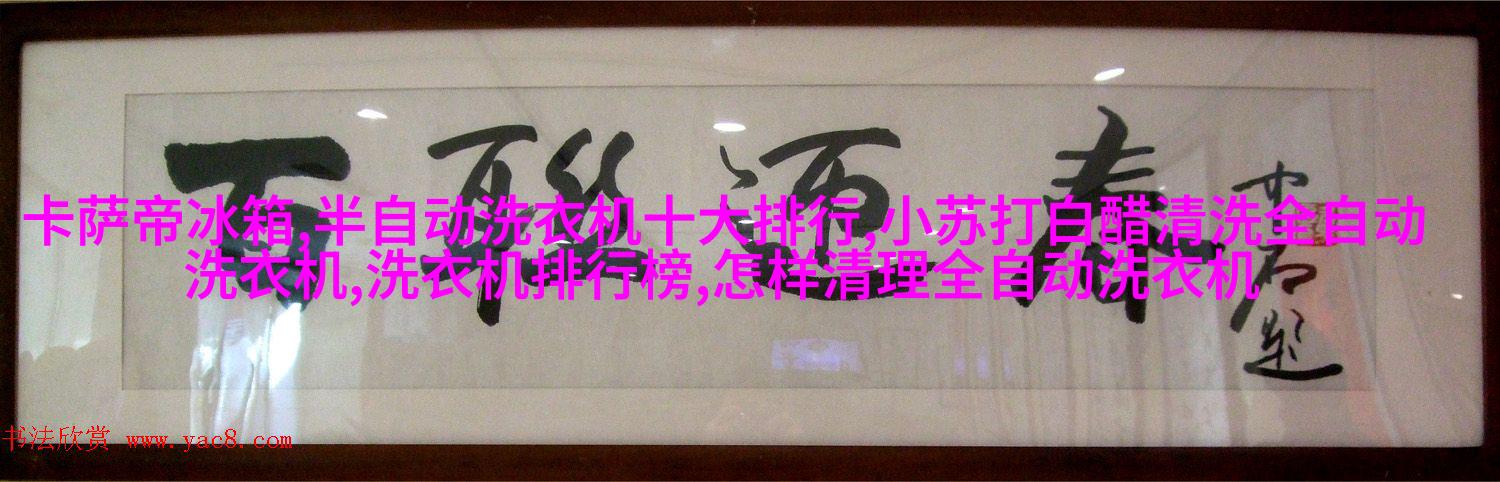 百联迎春
卡萨帝冰箱,半自动洗衣机十大排行,小苏打白醋清洗全自动
洗衣机,洗衣机排行榜,怎样清理全自动洗衣机
书法欣赏 www.yac8.com